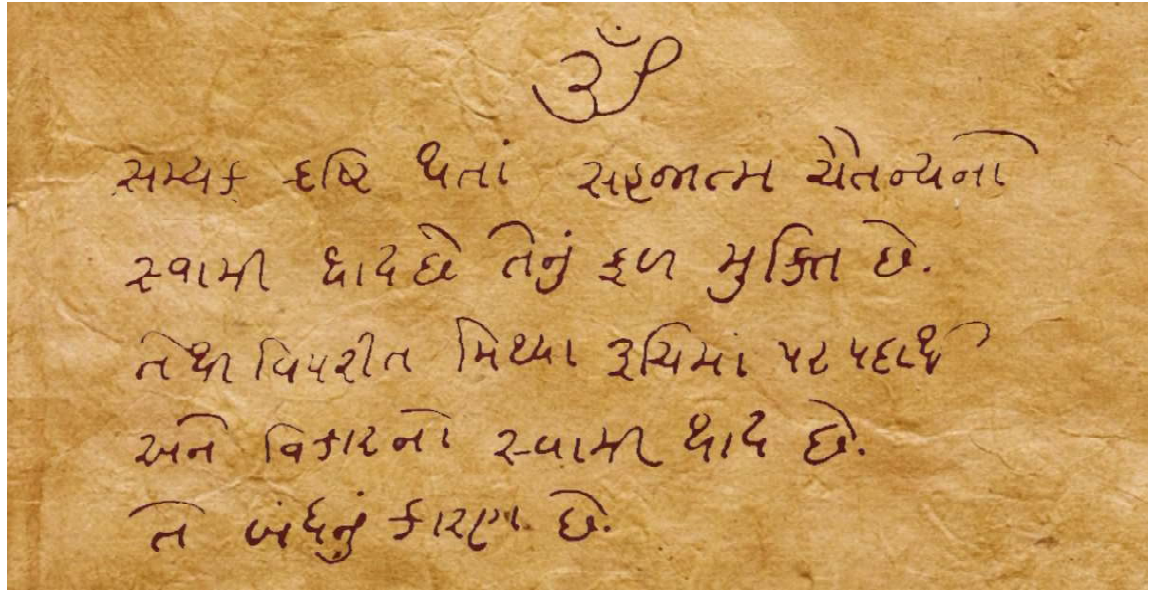 ૐ
સમ્યક દ્રષ્ટિ થતાં સહજાત્મ ચૈતન્યનો
સ્વામી થાય છે તેનું ફળ મુક્તિ છે.
તેથી વિપરીત મિથ્યા રૂચિમાં પર પદાર્થ
અને વિકારનો સ્વામી થાય છે.
તે બંધનું કારણ છે.